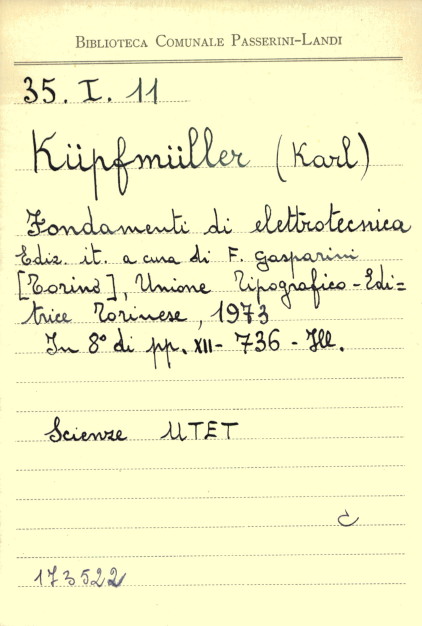 BIBLIOTECA COMUNALE PASSERINI-LANDI
35. I. 11
Küpfmüller (Karl)
Fondamenti di elettrotecnica
Ediz. it. a cura di F. Gasparini
[Torino], Unione Tipografico-Edi=
trice Torinese, 1973
In 8° di pp. XII- 736 - Ill.
Scienze UTET
C
173522